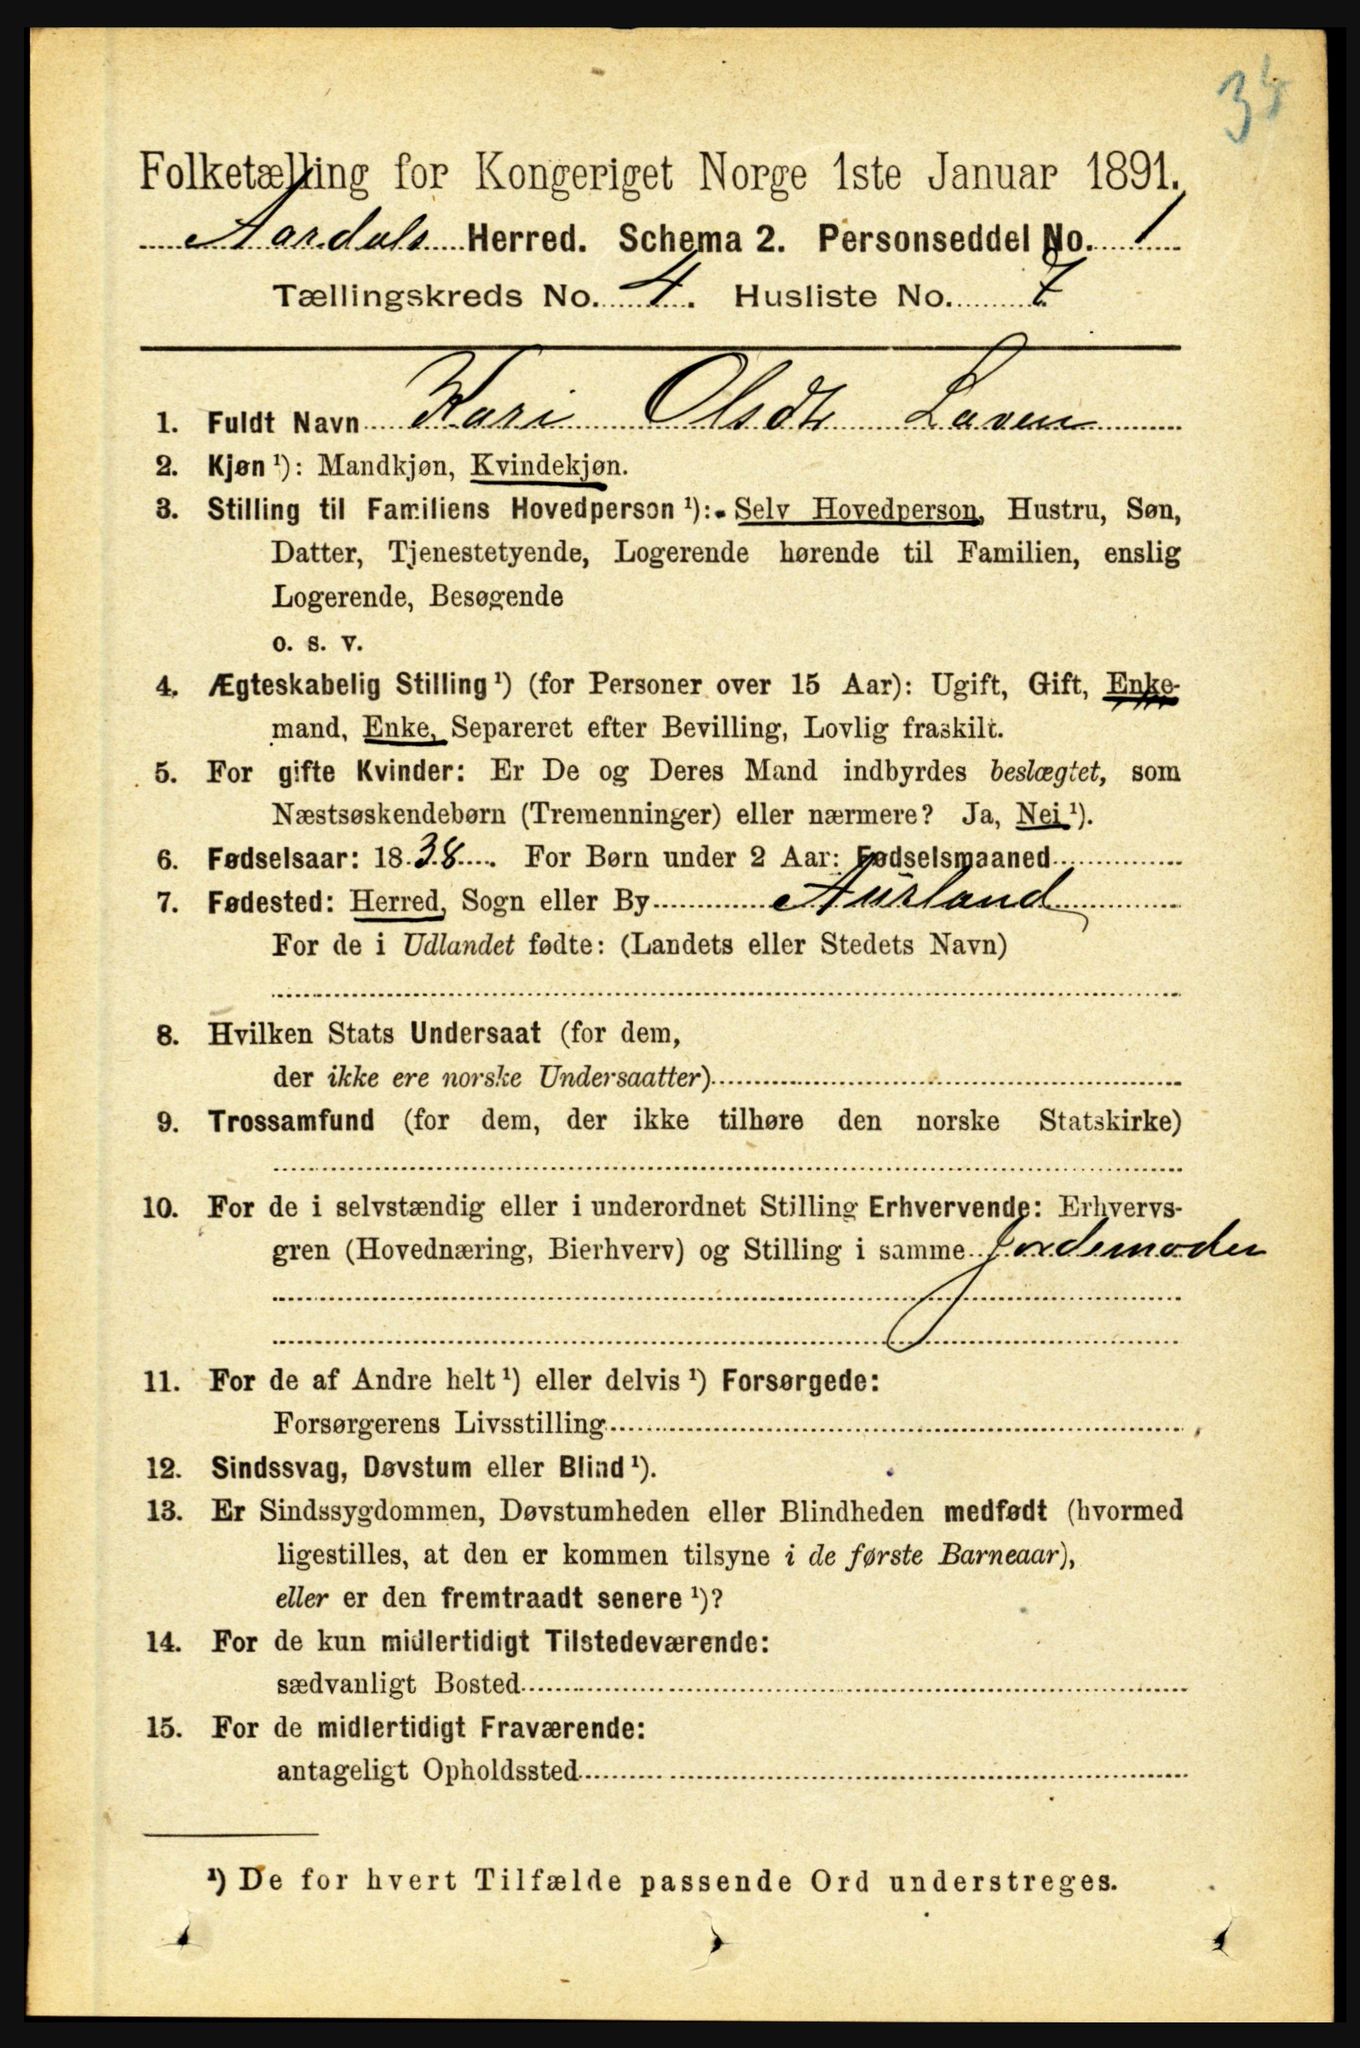 34
Folketælling for Kongeriget Norge 1ste Januar 1891.
Aardals Herred. Schema 2. Personseddel No. 1
Tællingskreds No. 4. Husliste No. 7
1. Fuldt Navn Kari Olsdtr Laven
2. Kjøn ¹): Mandkjøn, Kvindekjøn.
3. Stilling til Familiens Hovedperson ¹): Selv Hovedperson, Hustru, Søn,
Datter, Tjenestetyende, Logerende hørende til Familien, enslig
Logerende, Besøgende
o. s. v.
4. Ægteskabelig Stilling ¹) (for Personer over 15 Aar): Ugift, Gift, Enke-
mand, Enke, Separeret efter Bevilling, Lovlig fraskilt.
5. For gifte Kvinder: Er De og Deres Mand indbyrdes beslægtet, som
Næstsøskendebørn (Tremenninger) eller nærmere? Ja, Nei ¹).
6. Fødselsaar: 1838. For Børn under 2 Aar: Fødselsmaaned
7. Fødested: Herred, Sogn eller By Aurland
For de i Udlandet fødte: (Landets eller Stedets Navn)
8. Hvilken Stats Undersaat (for dem,
der ikke ere norske Undersaatter)
9. Trossamfund (for dem, der ikke tilhøre den norske Statskirke)
10. For de i selvstændig eller i underordnet Stilling Erhvervende: Erhvervs-
gren (Hovednæring, Bierhverv) og Stilling i samme Jordemoder
11. For de af Andre helt ¹) eller delvis ¹) Forsørgede:
Forsørgerens Livsstilling
12. Sindssvag, Døvstum eller Blind ¹).
13. Er Sindssygdommen, Døvstumheden eller Blindheden medfødt (hvormed
ligestilles, at den er kommen tilsyne i de første Barneaar),
eller er den fremtraadt senere ¹)?
14. For de kun midlertidigt Tilstedeværende:
sædvanligt Bosted
15. For de midlertidigt Fraværende:
antageligt Opholdssted
¹) De for hvert Tilfælde passende Ord understreges.